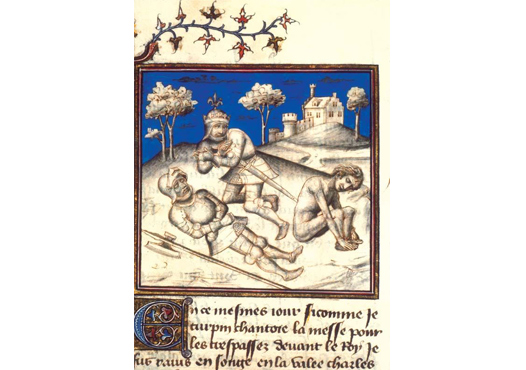 En ce mesmes iour sicomme je
turpin chantoie la messe pour
les trespassez deuant le Roy je
fus rauis en songe en la valee charles